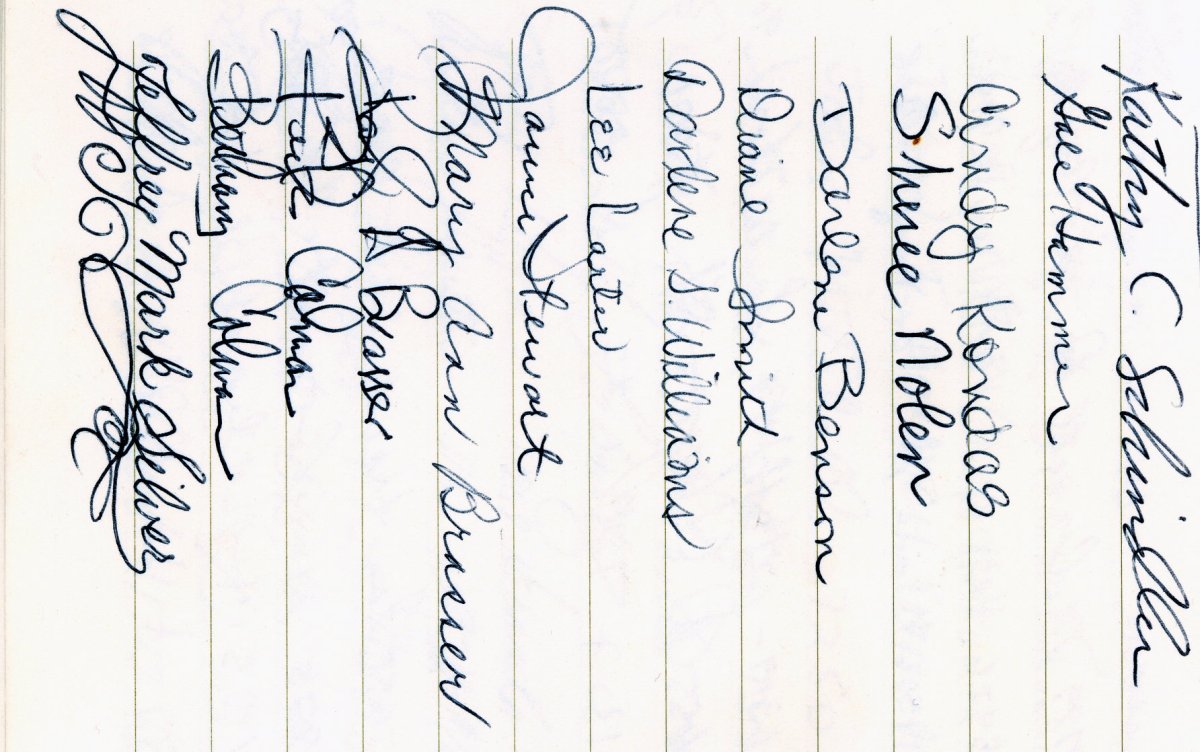 Kathy C. Schindler
Gale Hammer
Cindy Kondas
Sheree Nolen
Darlane Benson
Diane Smith
Darlene S. Williams
Lee Larter
Janice Stewart
Mary Ann Brasser
R Brasser
Jack Colman
Colman
Jeffrey Mark Silver